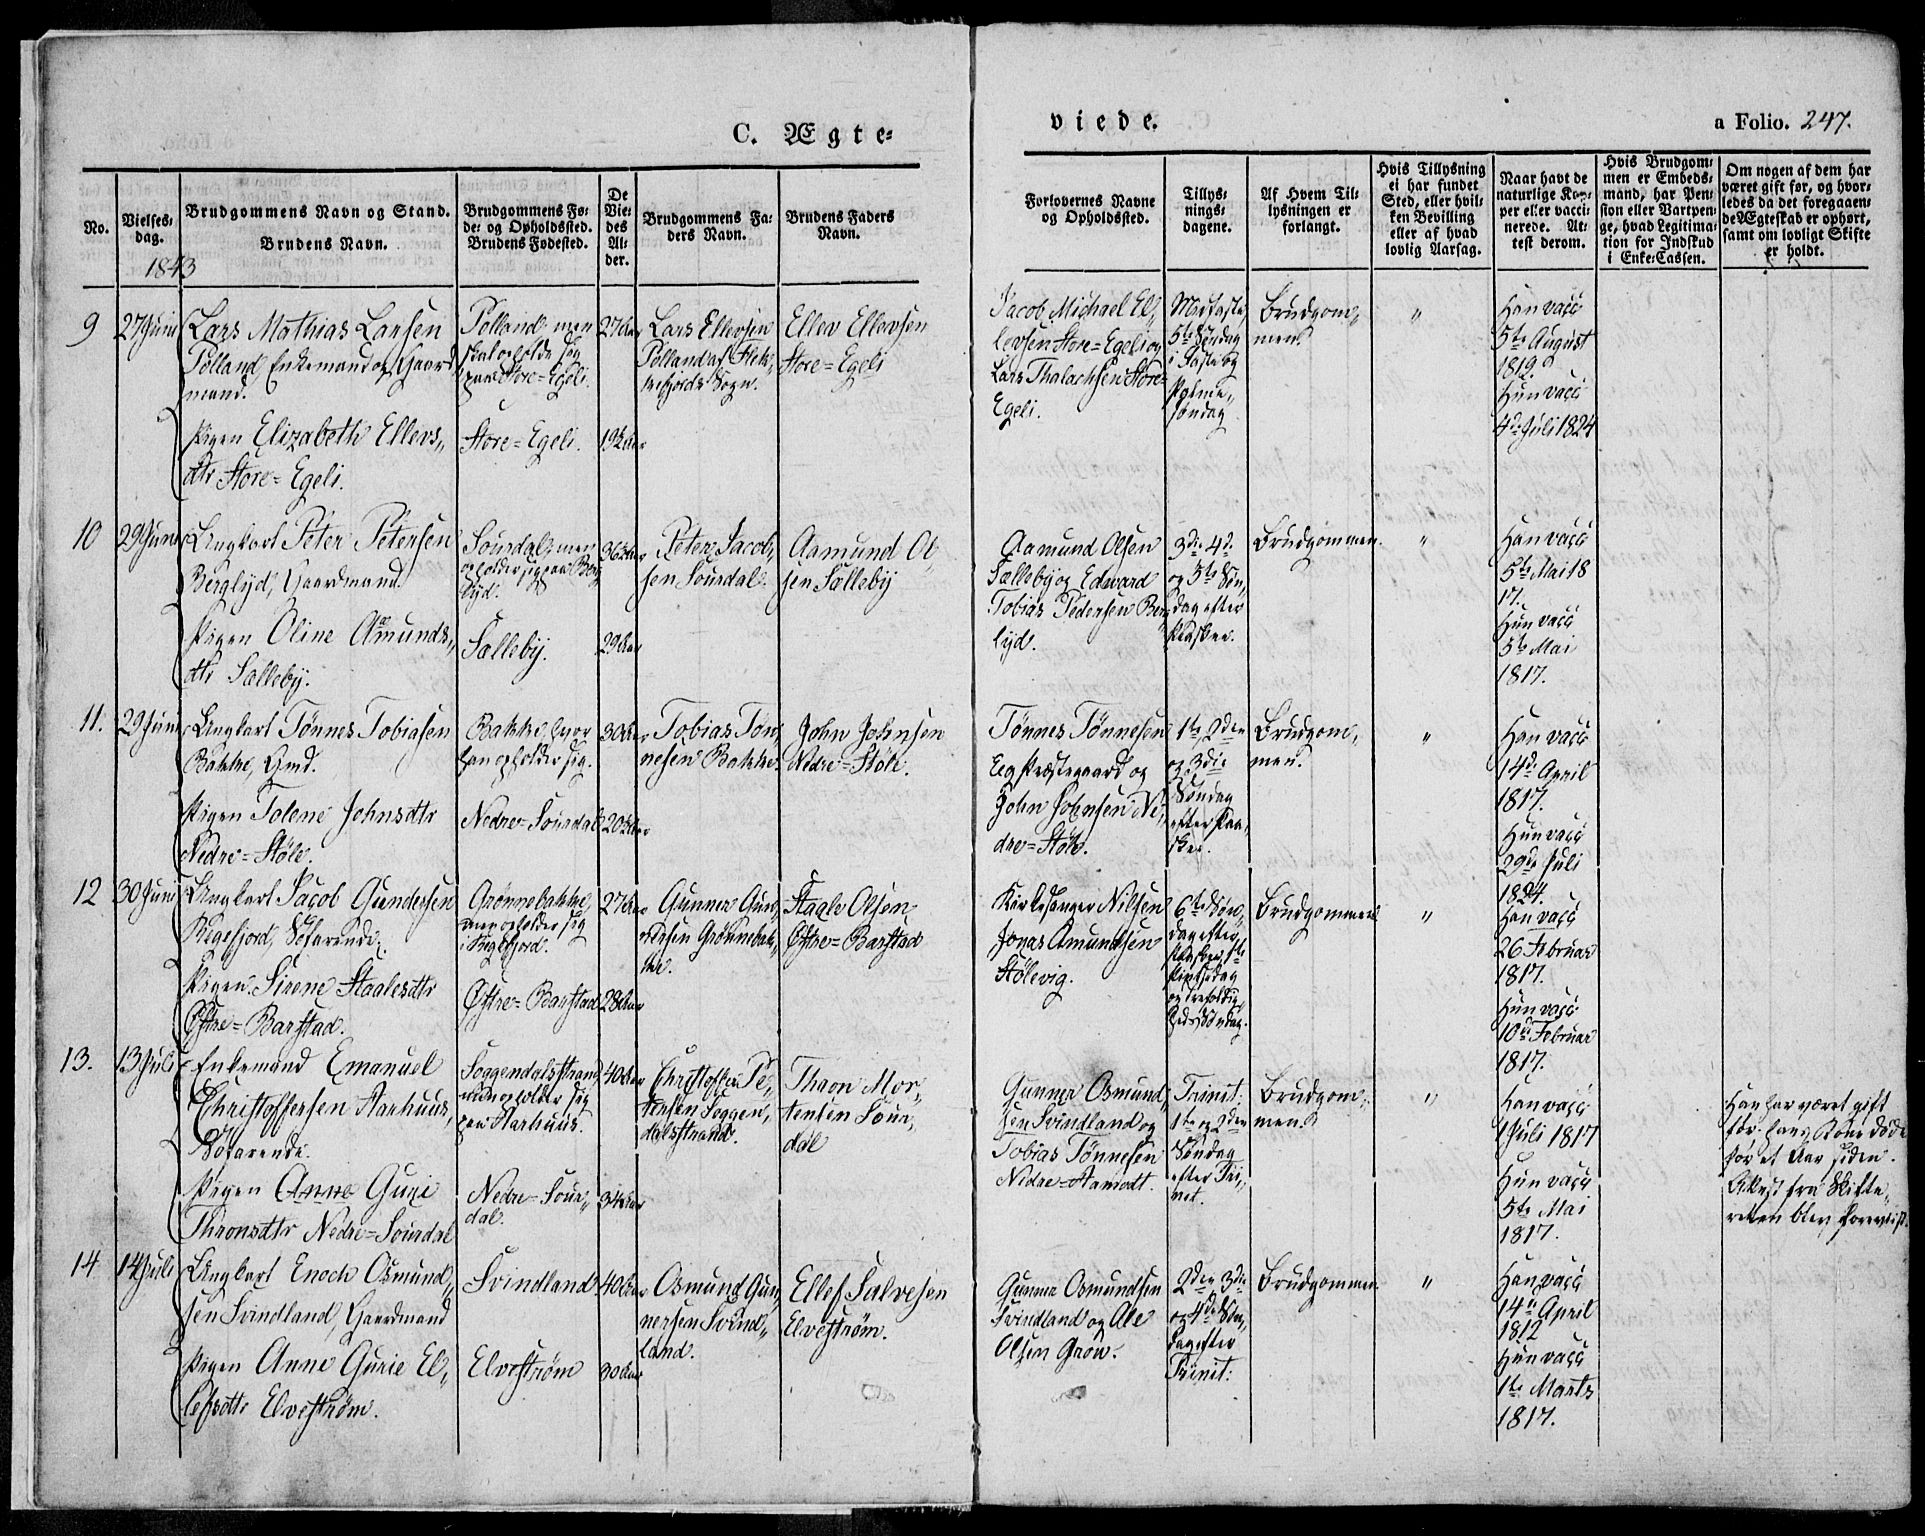 C. Ægte-
viede.
a Folio. 247.
No.
Vielses-
dag.
1843
Brudgommens Navn og Stand.
Brudens Navn.
Brudgommens Fø-
de- og Opholdssted.
Brudens Fødested.
De
Vie-
des
Al-
der.
Brudgommens Fa-
ders Navn.
Brudens Faders
Navn.
Forlovernes Navne
og Opholdssted.
Tillys-
nings-
dagene.
Af Hvem Til-
lysningen er
forlangt.
Hvis Tillysning
ei har fundet
Sted, eller hvil-
ken Bevilling
eller af hvad
lovlig Aarsag.
Naar havt de
naturlige Kop-
per eller vacci-
nerede. At-
test derom.
Hvis Brudgom-
men er Embeds-
mand, har Pen-
sion eller Vartpen-
ge, hvad Legitima-
tion for Indskud
i Enke-Cassen.
Om nogen af dem har
været gift før, og hvor-
ledes da det foregaaen-
de Ægteskab er ophørt,
samt om lovligt Skifte
er holdt.
9
27 Juni
Lars Mathias Larsen
Polland, Enkemand og Gaard
mand.
Pigen Elizabeth Ellevs„
dtr Store=Egeli.
Polland men
skal opholde sig
paa Store=Egeli.
Store=Egeli.
27 Aar
19½ Aar
Lars Ellevsen
Polland af Flek„
kefjords Sogn.
Ellev Ellevsen
Store=Egeli
Jacob Michael El„
levsen Store=Egeli og
Lars Thalachsen Store=
Egeli.
Midfaste,
5te Søndag
i Faste og
Palme„
søndag
Brudgom„
men
"
Han vacc
5te August
1819.
Hun vacc
4de Juli 1824
10
29 Juni
Ungkarl Peter Petersen
Berglyd, Gaardmand.
Pigen Oline Aamunds„
dtr Salleby.
Sourdal, men
opholder sig paa Berg
lyd.
Salleby.
36 Aar
29 Aar
Peter Jacob„
sen Sourdal.
Aamund Ol„
sen Salleby
Aamund Olsen
Salleby og Edward
Tobias Pedersen Berg
lyd.
3die 4de
og 5te Søn„
dag efter
Paaske.
Brudgommen.
"
Han vacc
5te Mai 18
17.
Hun vacc
5te Mai
1817.
11.
29 Juni
Ungkarl Tønnes Tobiasen
Bakke, Gmd.
Pigen Tolene Johnsdtr
Nedre=Støle.
Bakke, hvor
han opholder sig.
Nedre=Sourdal
30 Aar
20½ Aar
Tobias Tøn„
nesen Bakke.
John Johnsen
Nedre=Støle.
Tønnes Tønnesen
Eeg Præstegaard og
John Johnsen Ne„
dre=Støle.
1ste, 2den
og 3die
Søndag
efter Paa„
ske.
Brudgom„
men.
"
Han vacc
14de April
1817.
Hun vacc
29de Juli
1824.
12
30 Juni
Ungkarl Jacob Gundersen
Regefjord, Søfarende.
Pigen Sirene Staalesdtr
Østre=Barstad.
Grønnebakke,
men opholder sig
i Regefjord.
Østre=Barstad
27 Aar
28 Aar
Gunner Gun„
nersen Grønnebak„
ke.
Staale Olsen
Østre=Barstad
Kirkesanger Nilsen
Jonas Amundsen
Stølevig.
6te Søn„
dag efter
Paaske, 1ste
Pintsedag
og Trefoldig„
heds Søndag.
Brudgommen
"
Han vacc
26 Februar
1817.
Hun vacc
10de Februar
1817.
13.
13 Juli
Enkemand Emanuel
Christoffersen Aarhuus,
Søfarende.
Pigen Anne Guri
Thronsdtr Nedre=Sourdal
Soggendalsstrand,
men opholder sig
paa Aarhuus.
Nedre=Sour„
dal.
40 Aar
34 Aar
Christoffer Pe„
tersen Soggen„
dalsstrand.
Thron Mor„
tensen Sour„
dal
Gunner Osmund„
sen Svindland og
Tobias Tønnesen
Nedre=Aamodt.
Trinit:
1ste og 2den
Søndag
efter Tri„
nit.
Brudgom„
men
"
Han vacc
1 Juli 1817
Hun vacc
5te Mai
1817.
Han har været gift
før. hans Kone døde
for et Aar siden.
Attest fra Skifte„
retten blev foreviist.
14
14 Juli
Ungkarl Enoch Osmund„
sen Svindland, Gaardmand
Pigen Anne Gurie El„
lefsdtr Elvestrøm.
Svindland
Elvestrøm
40 Aar
30 Aar
Osmund Gun„
nersen Svind„
land.
Ellef Salvesen
Elvestrøm.
Gunner Osmundsen
Svindland og Ole
Olsen Grøn.
2den 3die
og 4de Søn„
dag efter
Trinit:
Brudgommen.
"
Han vacc
14de April
1812
Hun vacc
1ste Marts
1817.